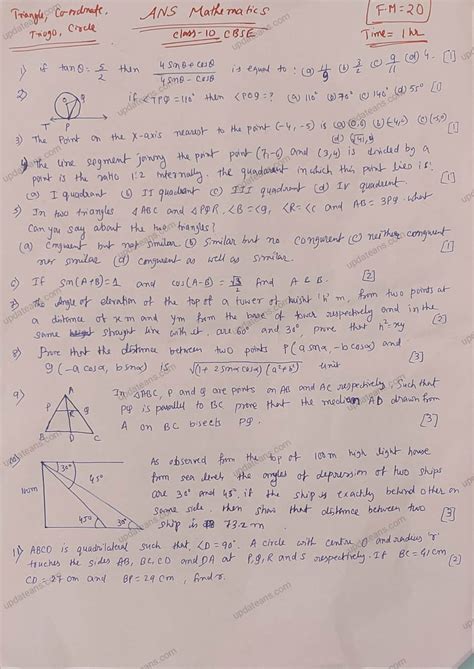 Triangle, Co-ordinate,
Trigo, Circle
ANS Mathematics
Class-10 CBSE
F.M=20
Time= 1 hr
1) if tanθ = 5/2 then (4sinθ + cosθ)/(4sinθ - cosθ) is equal to: (a) 11/9 (b) 3/2 (c) 9/11 (d) 4. [1]
2) if ∠TPQ=110° then ∠POQ=? (a) 110° (b) 70° (c) 140° (d) 55° [1]
T P O Q
3) The Point on the X-axis nearest to the point (-4,-5) is (a) (0,0) (b) (-4,0) (c) (-5,0)
(d) (√41,0) [1]
4) The line segment joining the point point (7,-6) and (3,4) is divided by a
point in the ratio 1:2 internally. the quadrant in which this point lies is:
(a) I quadrant (b) II quadrant (c) III quadrant (d) IV quadrent. [1]
5) In two triangles ∆ABC and ∆PQR, ∠B=∠Q, ∠R=∠C and AB=3PQ. what
Can you say about the two triangles?
(a) Congruent but not similar (b) Similar but no congurent (c) neither congruent
nor similar (d) Congruent as well as similar. [1]
6) If sin(A+B)=1 and cos(A-B)=√3/2 find A & B. [2]
7) The Angle of elevation of the top of a tower of height 'h' m, from two points at
a distence of x m and y m from the base of tower respectively and in the
same straight line with it. are 60° and 30°, prove that h²=xy [2]
8) Prove that the distance between two points P(a sinα, -b cosα) and
Q(-a cosα, b sinα) is √(1+2sinα cosα)(a²+b²) unit [3]
9) In ∆ABC, P and Q are points on AB and AC respectively, Such that
PQ is parallel to BC prove that the median AD drawn from
A on BC bisects PQ. [3]
A P R Q B D C
10) As observed from the top of 100m high light house
from sea level, the angles of depression of two ships
are 30° and 45°. if the ship is exactly behind other on
same side. then show that distance between two
ship is 73.2m [3]
100m 30° 45° 45° 30°
11) ABCD is quadrilateral such that ∠D=90°. A circle with centre O and radius 'r'
touches the sides AB, BC, CD and DA at P, Q, R and S respectively. If BC=41cm
CD=27cm and BP=29cm, find r. [2]
updateans.com